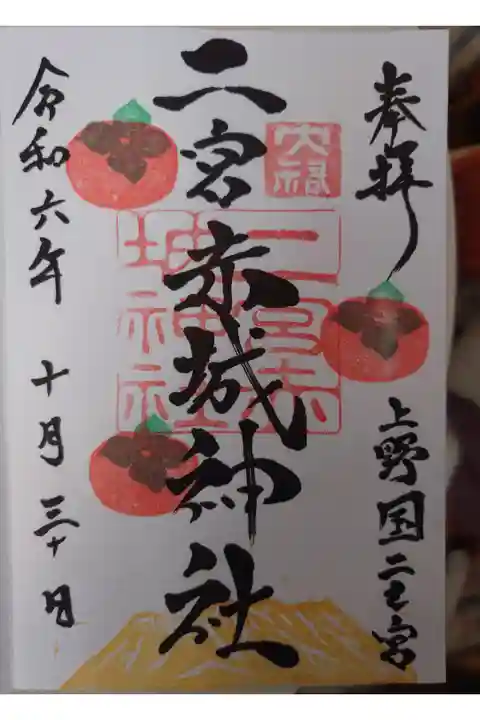 奉拝
上野国二之宮
大縁
二宮赤城神社
二宮赤
城神社
令和六年 十月 三十日